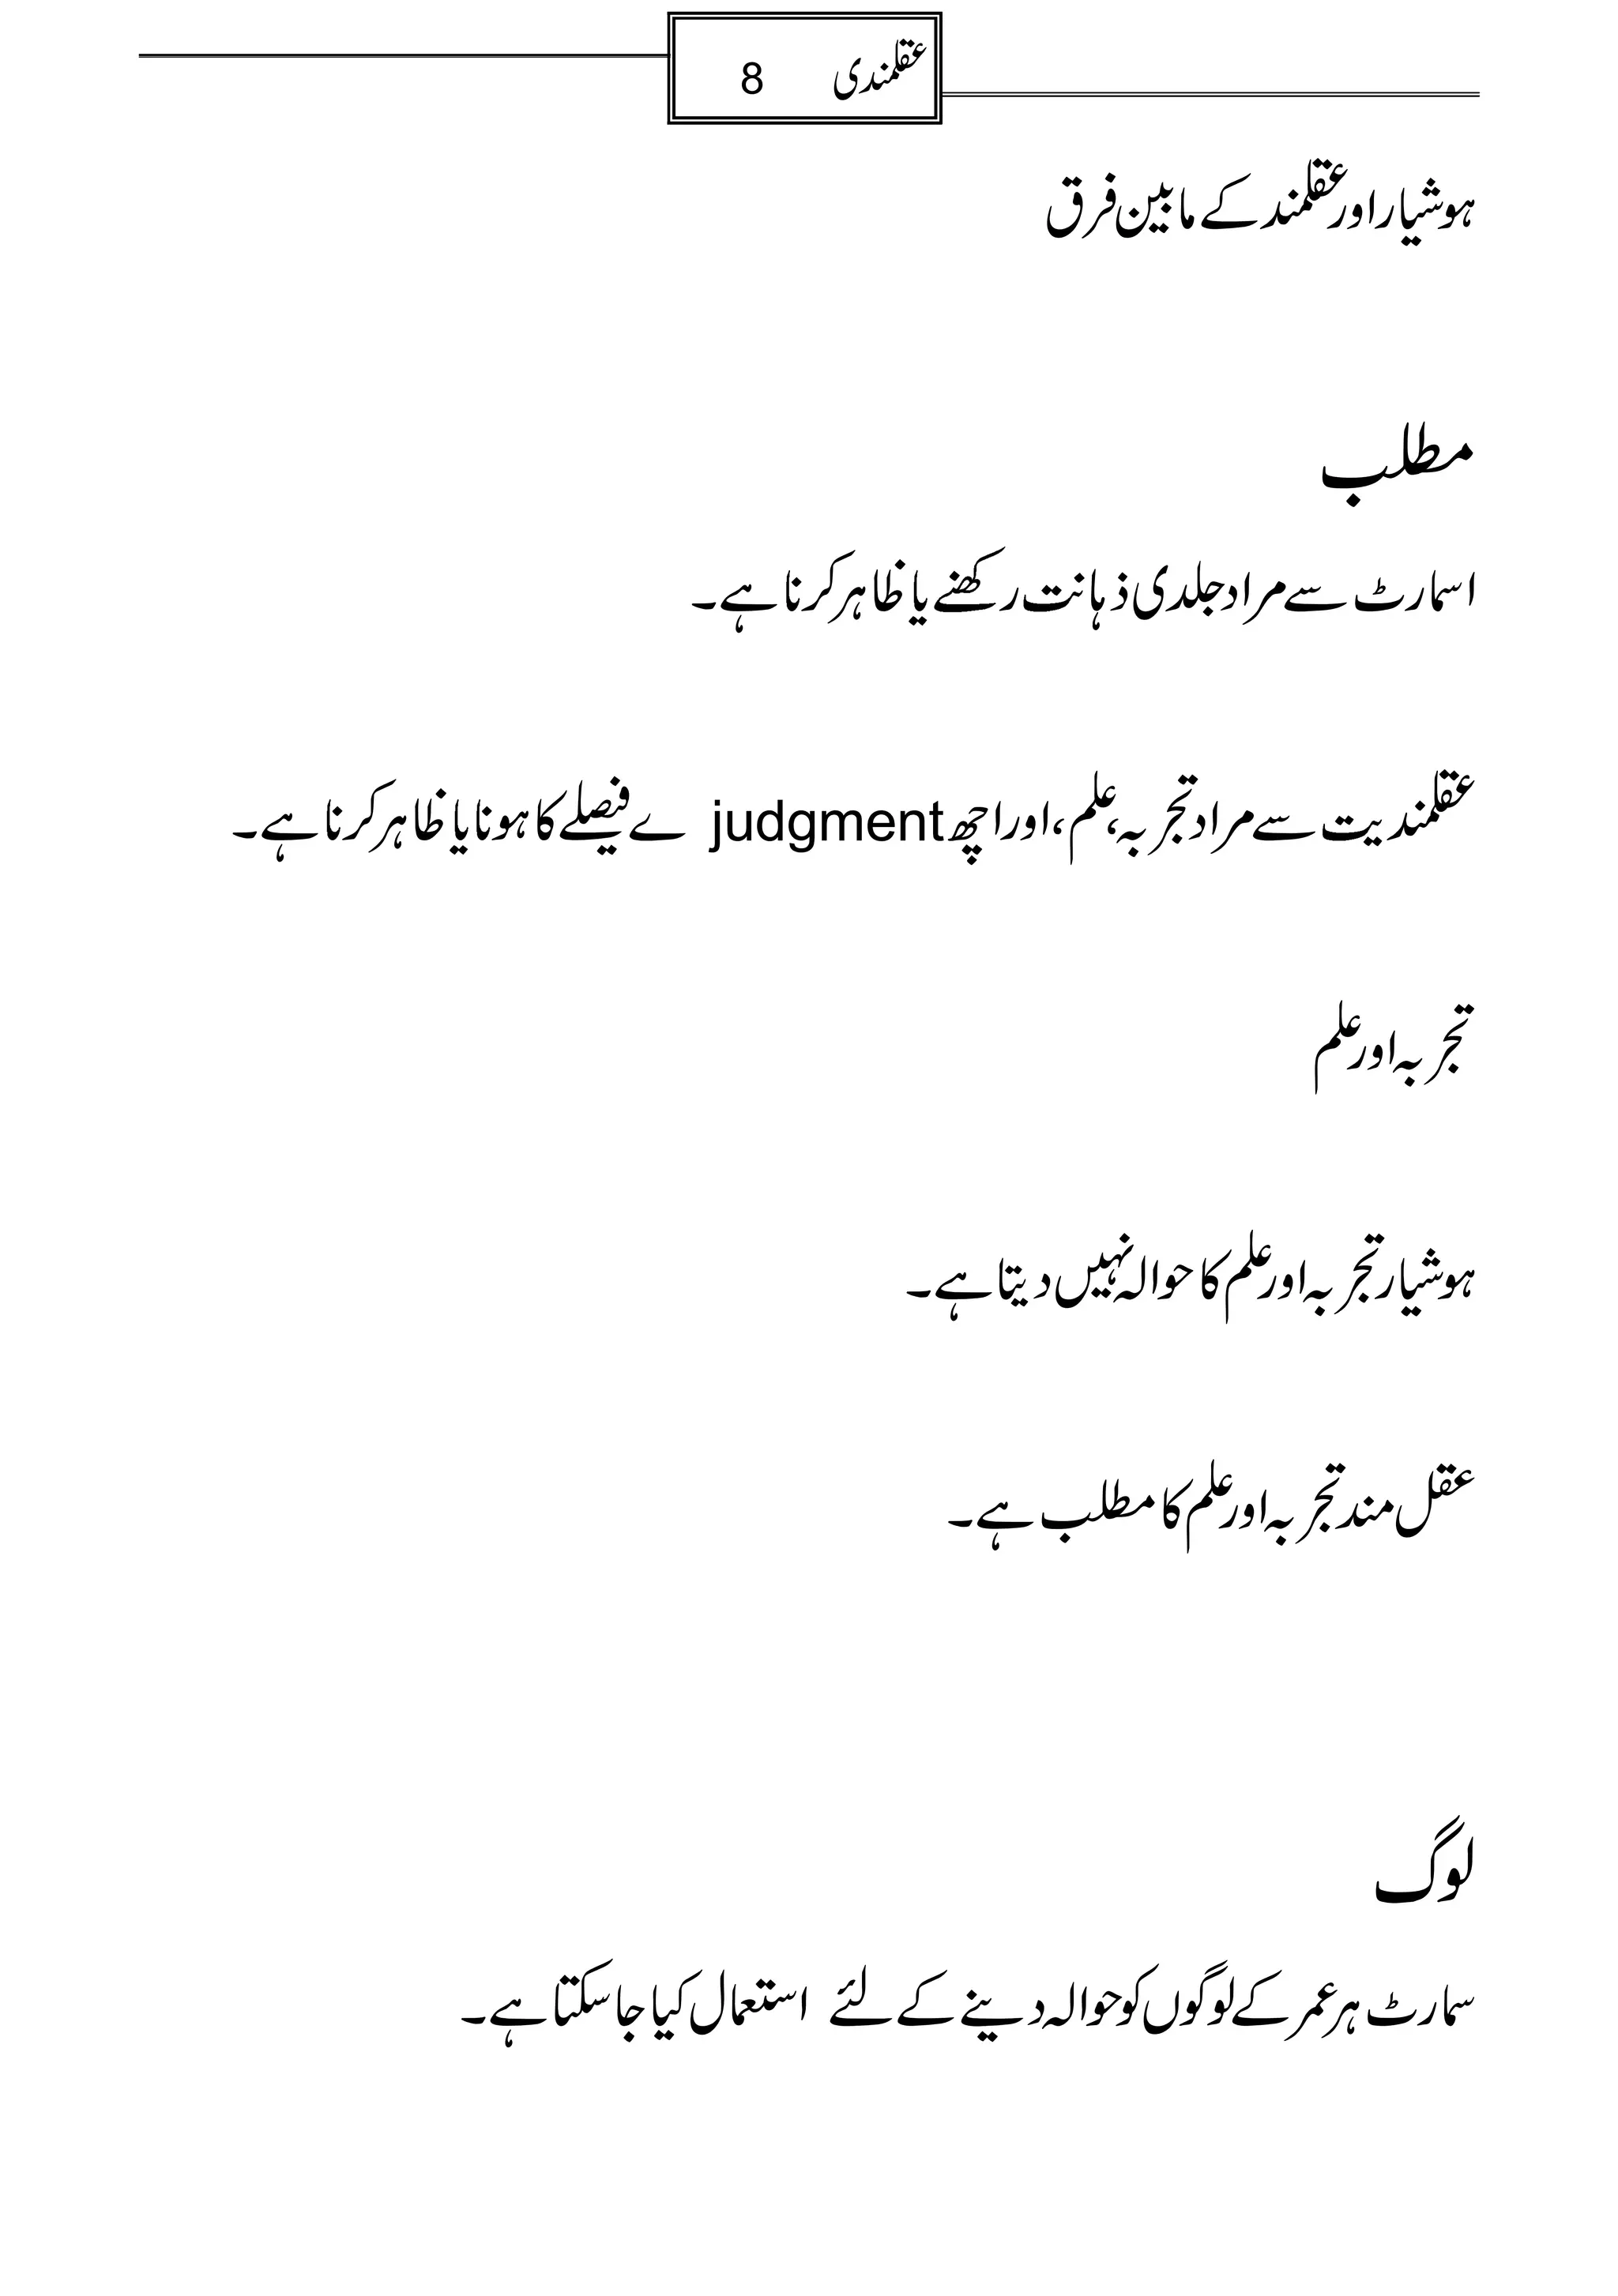 عقلمندی 8
ہوشیار اور عقلمند کے مابین فرق
مطلب
اسمارٹ سے مراد جلدی ذہانت رکھنے یا ظاہر کرنا ہے۔
عقلمندیت سے مراد تجربہ، علم، اور اچھے judgment سے فیصلے کا ہونا یا ظاہر کرنا ہے۔
تجربہ اور علم
ہوشیار تجربہ اور علم کا حوالہ نہیں دیتا ہے۔
عقل مند تجربہ اور علم کا مطلب ہے۔
لوگ
سمارٹ ہر عمر کے لوگوں کو حوالہ دینے کے لئے استعمال کیا جا سکتا ہے۔